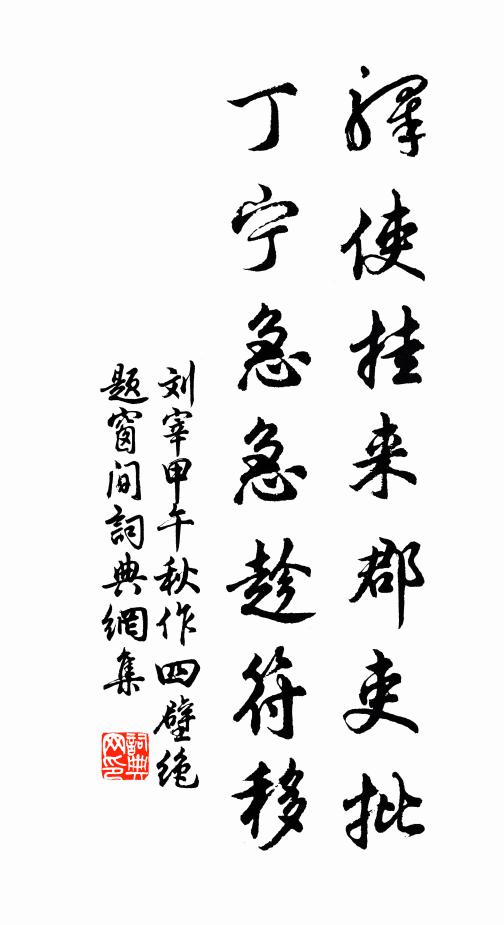 驛使挂来郡吏批
丁宁急急趁符移
刘宰甲午秋作四壁绝
题窗间詞典網集
詞典网印